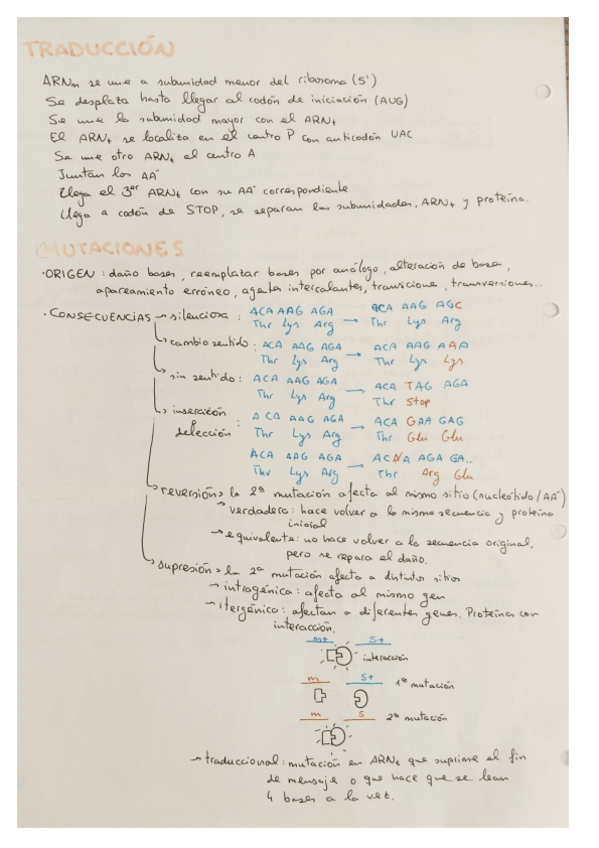 TRADUCCIÓN
ARNm se une a subunidad menor del ribosoma (5')
Se desplaza hasta llegar al codón de iniciación (AUG)
Se une la subunidad mayor con el ARNt
El ARNt se localiza en el centro P con anticodón UAC
Se une otro ARNt al centro A
Juntan los AA
Llega el 3er ARNt con su AA correspondiente
Llega a codón de STOP, se separan las subunidades, ARNt y proteína.
MUTACIONES
·ORIGEN: daño bases, reemplazar bases por análogo, alteración de bases,
apareamiento erróneo, agentes intercalantes, transiciones, transversiones...
·CONSECUENCIAS → silenciosa: ACA AAG AGA → ACA AAG AGC
Thr Lys Arg Thr Lys Arg
cambio sentido: ACA AAG AGA → ACA AAG AAA
Thr Lys Arg Thr Lys Lys
sin sentido: ACA AAG AGA → ACA TAG AGA
Thr Lys Arg Thr Stop
inserción : ACA AAG AGA → ACA GAA GAG
delección Thr Lys Arg Thr Glu Glu
ACA AAG AGA → ACA AGA GA..
Thr Lys Arg Thr Arg Glu
reversión: la 2ª mutación afecta al mismo sitio (nucleótido/AA)
→ verdadera: hace volver a la misma secuencia y proteína
inicial
→ equivalente: no hace volver a la secuencia original,
pero se repara el daño.
supresión: la 2ª mutación afecta a distintos sitios
→ intragénica: afecta al mismo gen
→ itergénica: afectan a diferentes genes. Proteínas con
interacción.
m+ S+
interacción
m S+ 1ª mutación
m S 2ª mutación
→ traduccional: mutación en ARNt que suprime el fin
de mensaje o que hace que se lean
4 bases a la vez.